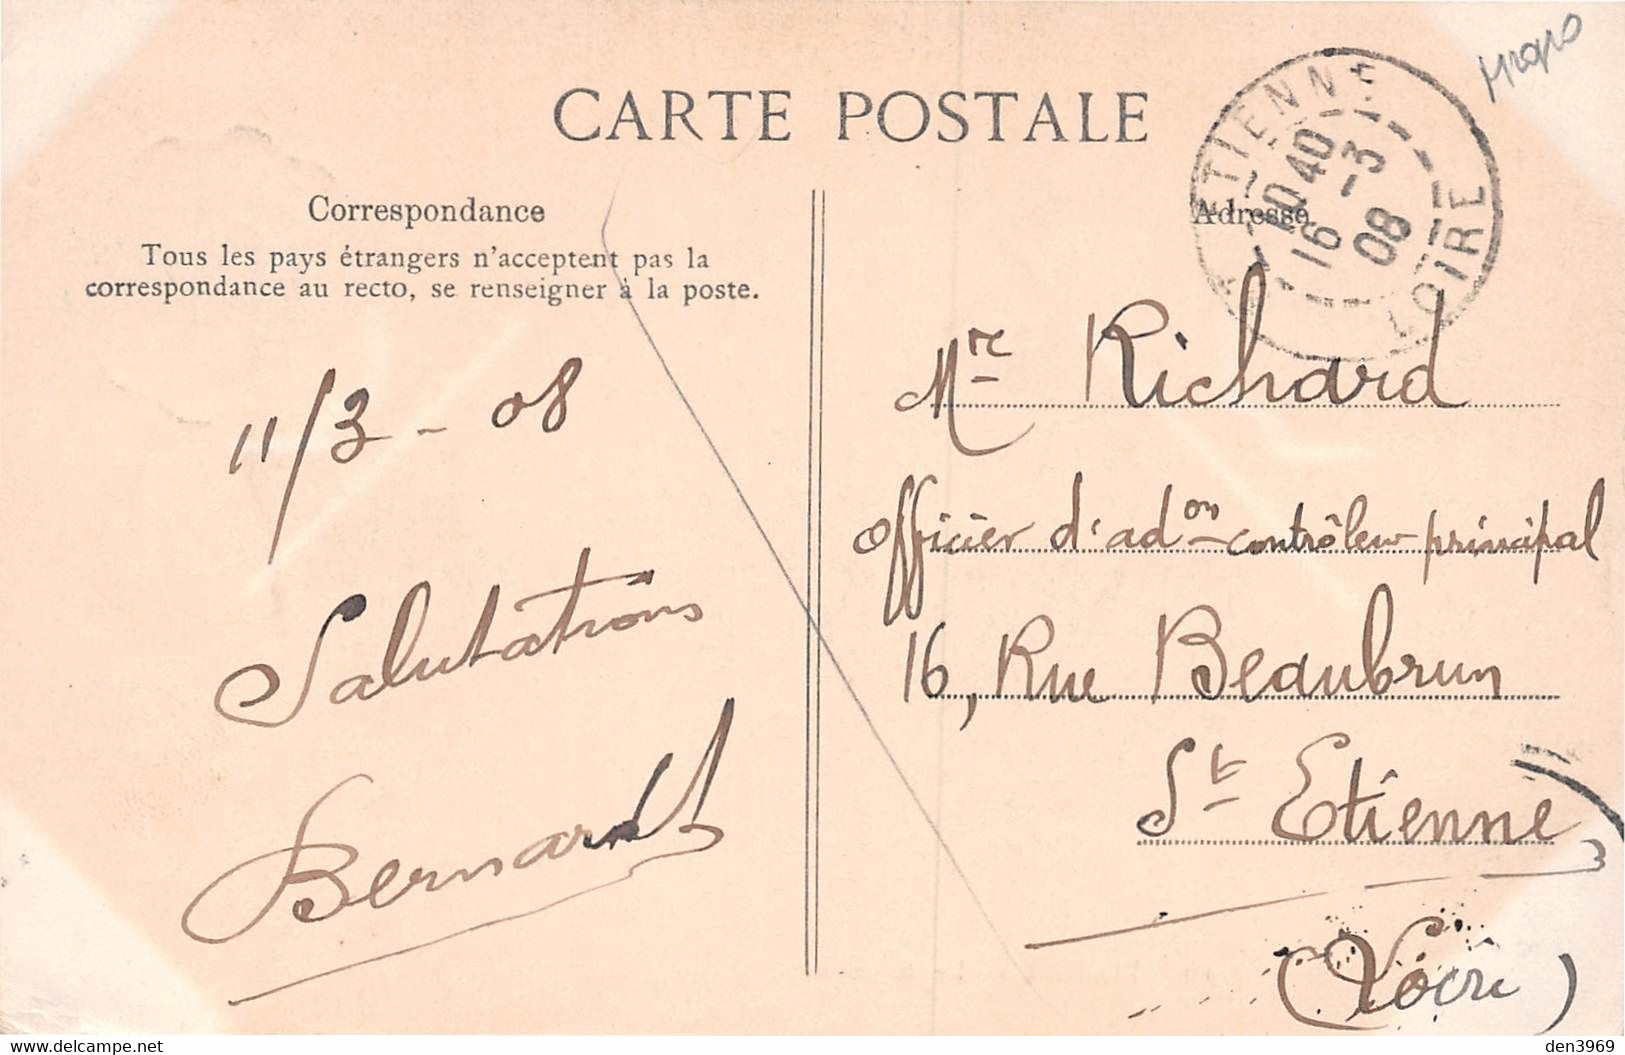 CARTE POSTALE
Correspondance
Tous les pays étrangers n'acceptent pas la
correspondance au recto, se renseigner à la poste.
11/3 - 08
Salutations
Bernard
Adresse
ETIENNE
10 40
16 - 3
08
LOIRE
Mr Richard
Officier d'adon contrôleur principal
16, Rue Beaubrun
St Etienne
(Loire)
www.delcampe.net
den3969